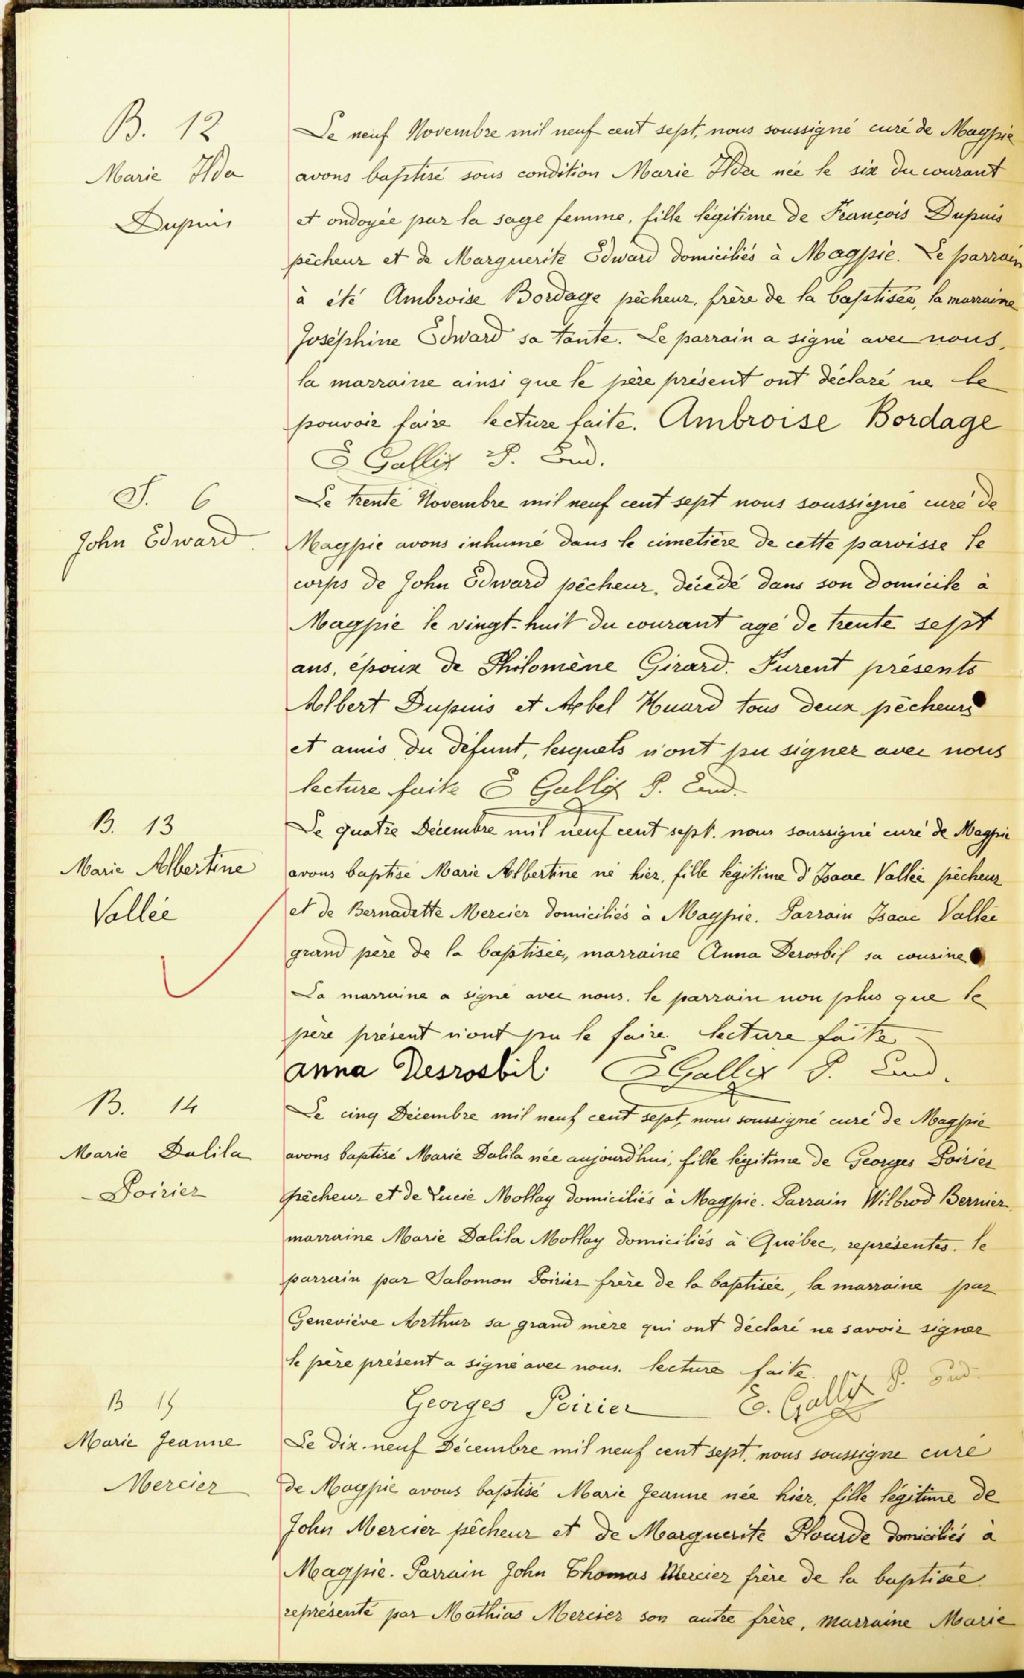 B. 12
Marie Ilda
Dupuis
Le neuf Novembre mil neuf cent sept, nous soussigné curé de Magpie
avons baptisé sous condition Marie Ilda née le six du courant
et ondoyée par la sage femme, fille légitime de François Dupuis
pêcheur et de Marguerite Edward domiciliés à Magpie. Le parrain
à été Ambroise Bordage pêcheur, frère de la baptisée, la marraine
Joséphine Edward sa tante. Le parrain a signé avec nous,
la marraine ainsi que le père présent ont déclaré ne le
pouvoir faire lecture faite. Ambroise Bordage
E Gallix P. Eud.
S. 6
John Edward
Le trente Novembre mil neuf cent sept nous soussigné curé de
Magpie avons inhumé dans le cimetière de cette paroisse le
corps de John Edward pêcheur, décédé dans son domicile à
Magpie le vingt-huit du courant agé de trente sept
ans, époux de Philomène Girard. Furent présents
Albert Dupuis et Abel Huard tous deux pêcheurs
et amis du défunt, lesquels n'ont pu signer avec nous
lecture faite E Gallix P. Eud.
B. 13
Marie Albertine
Vallée
Le quatre Décembre mil neuf cent sept. nous soussigné curé de Magpie
avons baptisé Marie Albertine né hier, fille légitime d'Isaac Vallée pêcheur
et de Bernadette Mercier domiciliés à Magpie. Parrain Isaac Vallée
grand père de la baptisée, marraine Anna Derosbil sa cousine
La marraine a signé avec nous. le parrain non plus que le
père présent n'ont pu le faire lecture faite
anna Desrosbil. E Gallix P. Eud.
B. 14
Marie Dalila
Poirier
Le cinq Décembre mil neuf cent sept, nous soussigné curé de Magpie
avons baptisé Marie Dalila née aujourd'hui, fille légitime de Georges Poirier
pêcheur et de Lucie Mollay domiciliés à Magpie. Parrain Wilbrod Bernier
marraine Marie Dalila Mollay domiciliés à Québec, représentés. le
parrain par Salomon Poirier frère de la baptisée, la marraine par
Geneviève Arthur sa grand mère qui ont déclaré ne savoir signer
le père présent a signé avec nous. lecture faite.
Georges Poirier E. Gallix P. Eud.
B 15
Marie Jeanne
Mercier
Le dix-neuf Décembre mil neuf cent sept, nous soussigne curé
de Magpie avons baptisé Marie Jeanne née hier, fille légitime de
John Mercier pêcheur et de Marguerite Plourde domiciliés à
Magpie. Parrain John Thomas Mercier frère de la baptisée
représenté par Mathias Mercier son autre frère, marraine Marie